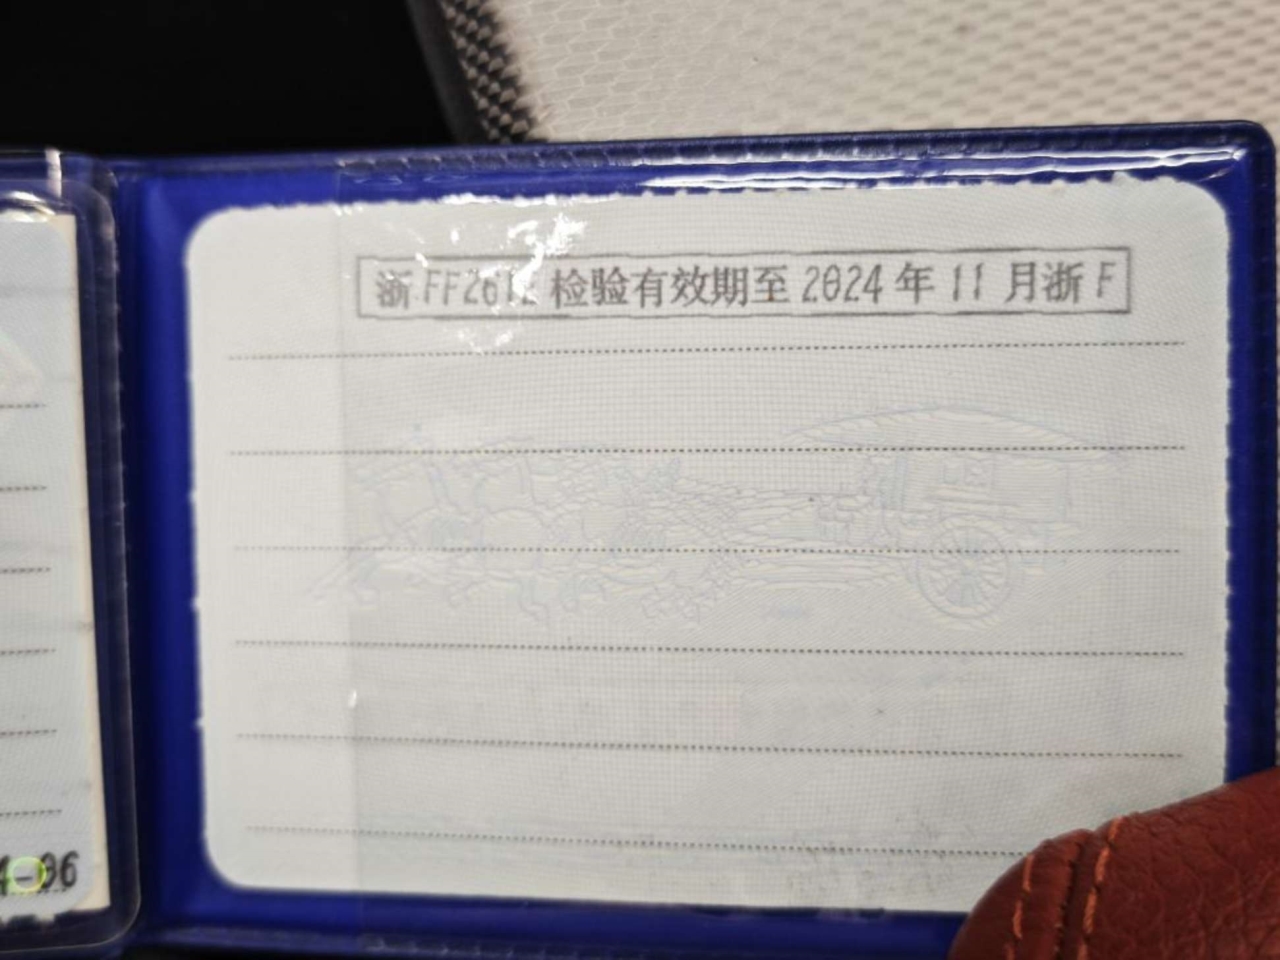 浙 FF2612 检验有效期至 2024 年 11 月浙 F
4-06